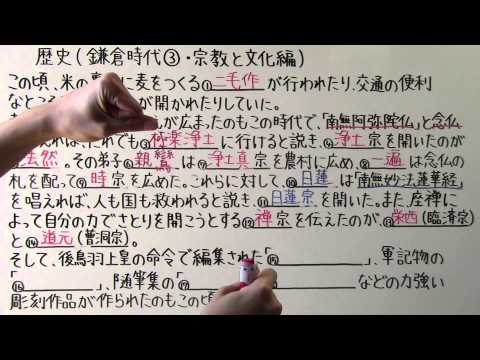 歴史(鎌倉時代③・宗教と文化編)
この頃、米の 麦をつくる①二毛作が行われたり、交通の便利
なところ が開かれたりしていた。
が広まったのもこの時代で、「南無阿弥陀仏」と念仏
えれば、だれでも④極楽浄土に行けると説き、⑤浄土宗を開いたのが
法然。その弟子⑦親鸞は⑧浄土真宗を農村に広め、⑨一遍は念仏の
札を配って⑩時宗を広めた。これらに対して、⑪日蓮は「南無妙法蓮華経」
を唱えれば、人も国も救われると説き、⑫日蓮宗を開いた。また、座禅に
よって自分の力でさとりを開こうとする⑬禅宗を伝えたのが、栄西(臨済宗)
と 道元(曹洞宗)。
そして、後鳥羽上皇の命令で編集された「 」、軍記物の
「 」、随筆集の「 などの力強い
彫刻作品が作られたのもこの頃